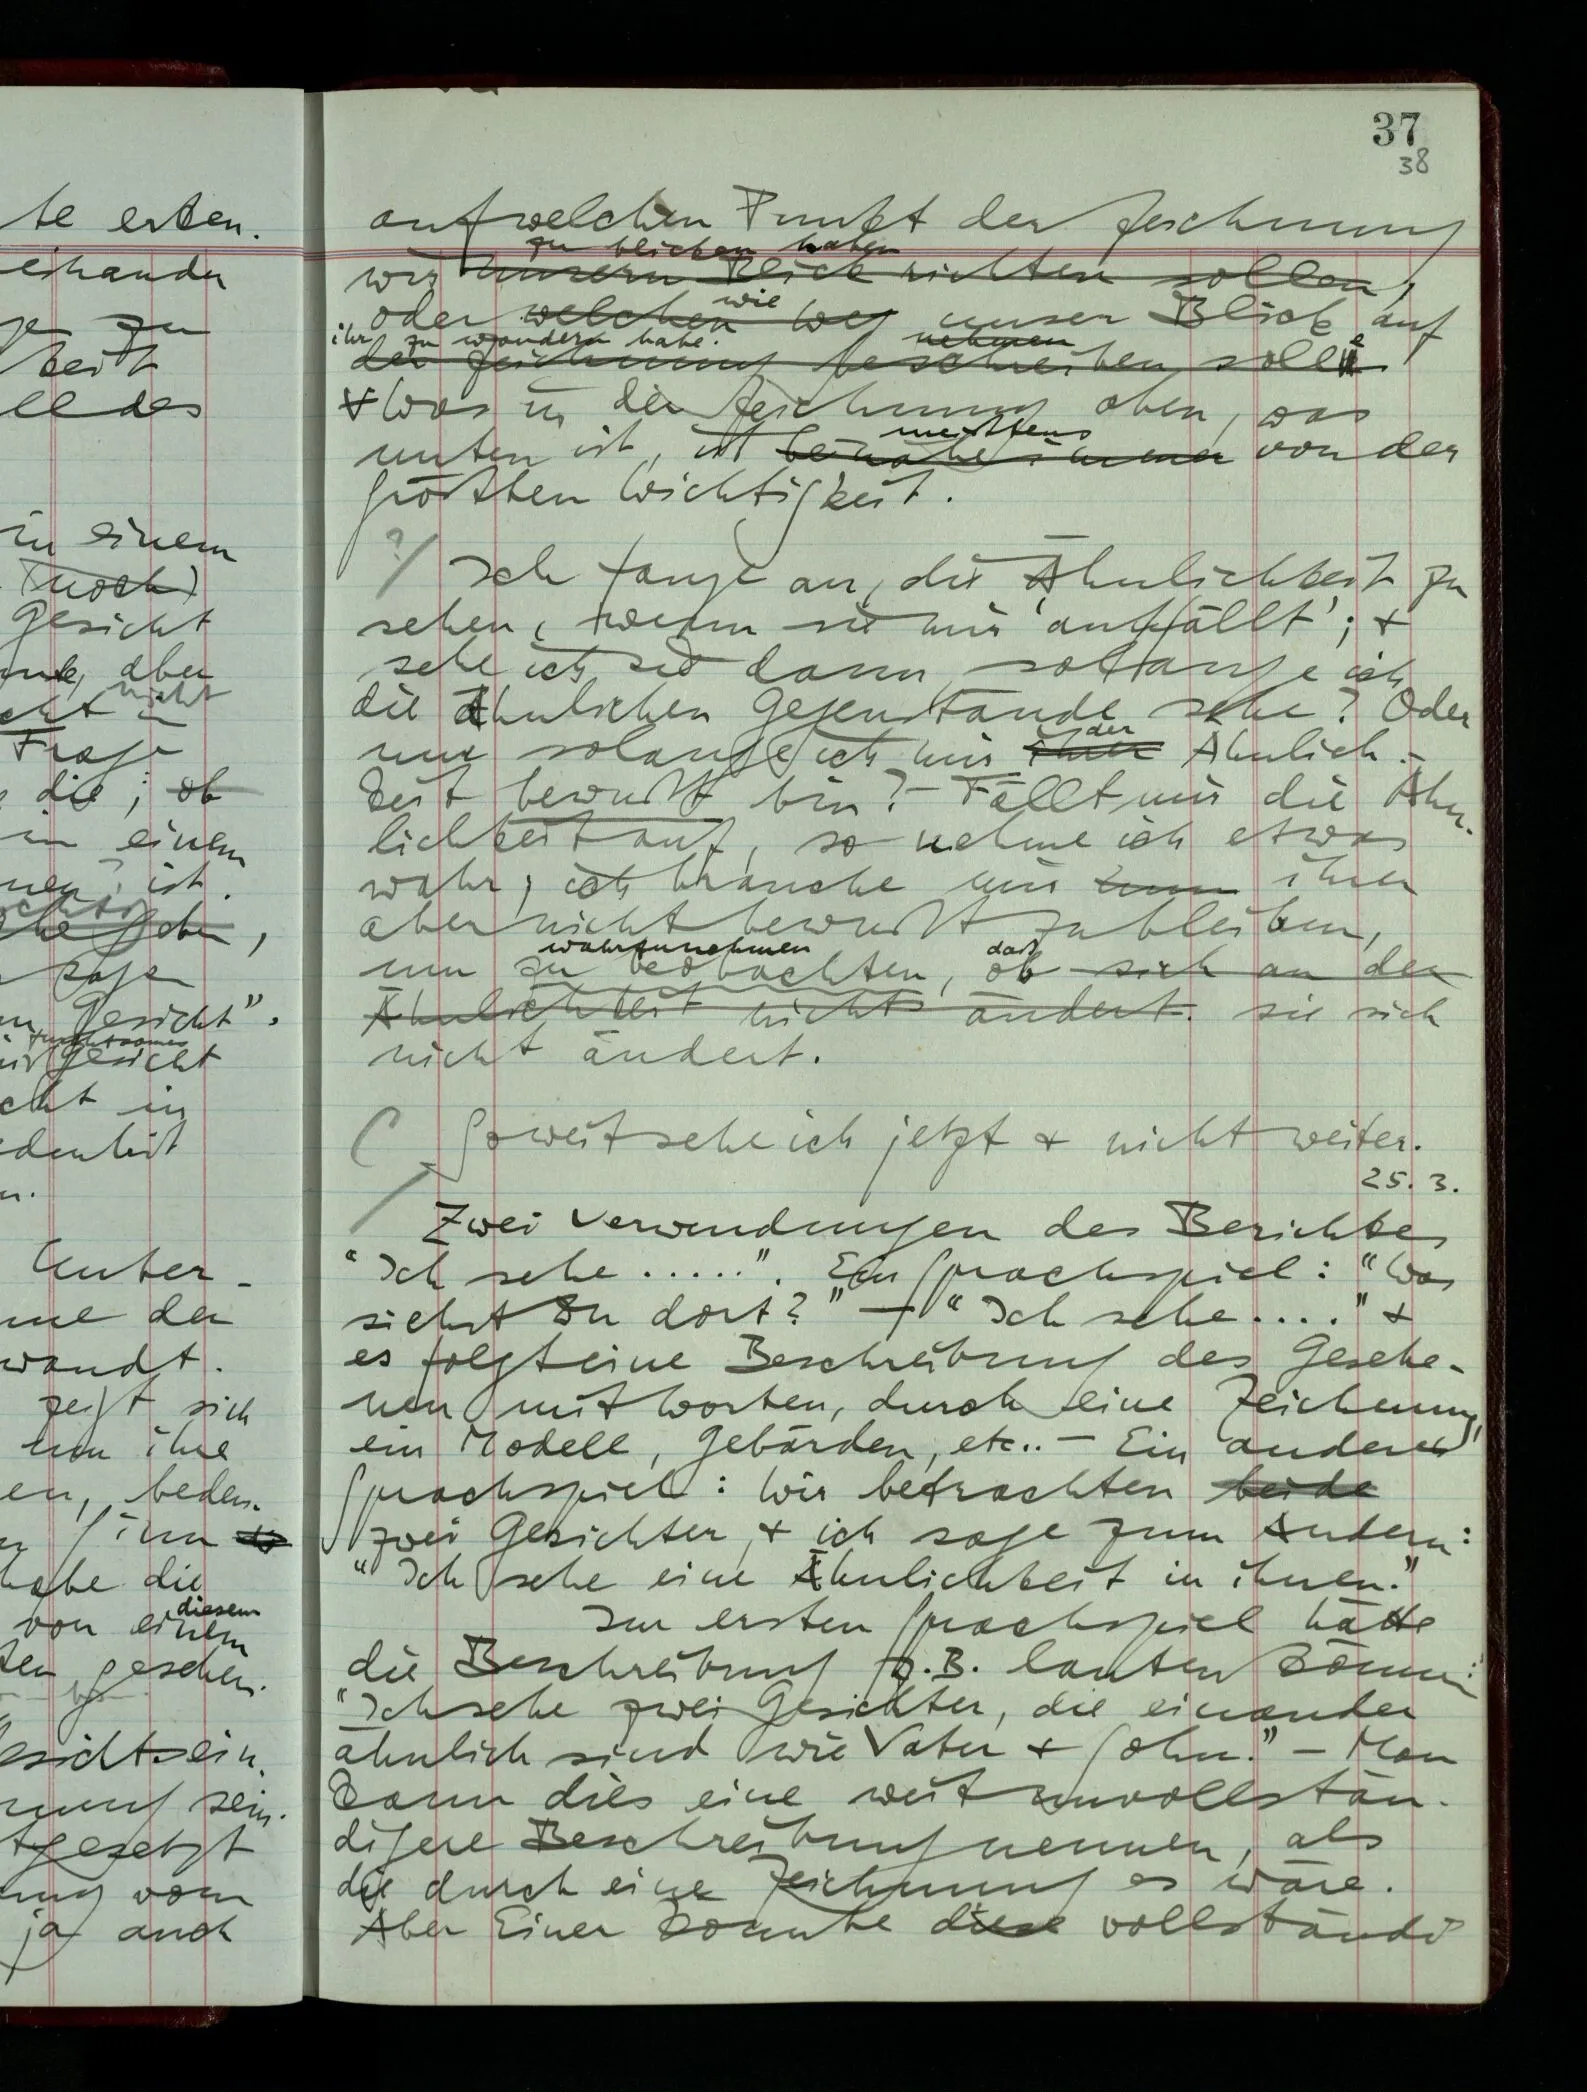 te erten.
einander
zu
keit
ll des
in einem
(noch)
Gesicht
aber
nicht
Frage
die; ob
in einem
ist.
,
sage
Gesicht".
furchtsames
Gesicht
in
denheit
n.
Unter-
der
wandt.
zeigt sich
nun ihre
en, beden-
Sinn
habe die
diesem
von einem
gesehen.
Gesicht sein,
sein.
gesetzt
vom
ja auch
37
38
auf welchen Punkt der Zeichnung
zu blicken haben
wir unsern Blick richten sollen,
wie
oder welchen Weg unser Blick auf
ihr zu wandern habe. nehmen
der Zeichnung beschreiben solle
+ Was in der Zeichnung oben, was
meistens
unten ist, ist beinahe immer von der
größten Wichtigkeit.
?/ Ich fange an, die Ähnlichkeit zu
sehen, wenn sie mir 'auffällt'; +
sehe ich sie dann, solange ich
die ähnlichen Gegenstände sehe? Oder
der
nur solange ich mir ihrer Ähnlich-
keit bewußt bin? – Fällt mir die Ähn-
lichkeit auf, so nehme ich etwas
wahr; ich brauche mir ihrer
aber nicht bewußt zu bleiben,
wahrzunehmen daß
um zu beobachten, ob sich an der
Ähnlichkeit nichts ändert. sie sich
nicht ändert.
( Soweit sehe ich jetzt + nicht weiter.
25. 3.
/ Zwei Verwendungen des Berichtes
"Ich sehe .....". Ein Sprachspiel: "Was
siehst Du dort?" – "Ich sehe ...." +
es folgt eine Beschreibung des Gesehe-
nen mit Worten, durch eine Zeichnung,
ein Modell, Gebärden, etc.. – Ein anderes
Sprachspiel: Wir betrachten beide
zwei Gesichter, + ich sage zum Andern:
"Ich sehe eine Ähnlichkeit in ihnen."
Im ersten Sprachspiel hätte
die Beschreibung z.B. lauten können:
"Ich sehe zwei Gesichter, die einander
ähnlich sind wie Vater + Sohn." – Man
kann dies eine weit unvollstän-
digere Beschreibung nennen, als
die durch eine Zeichnung es wäre.
Aber Einer könnte diese vollständi